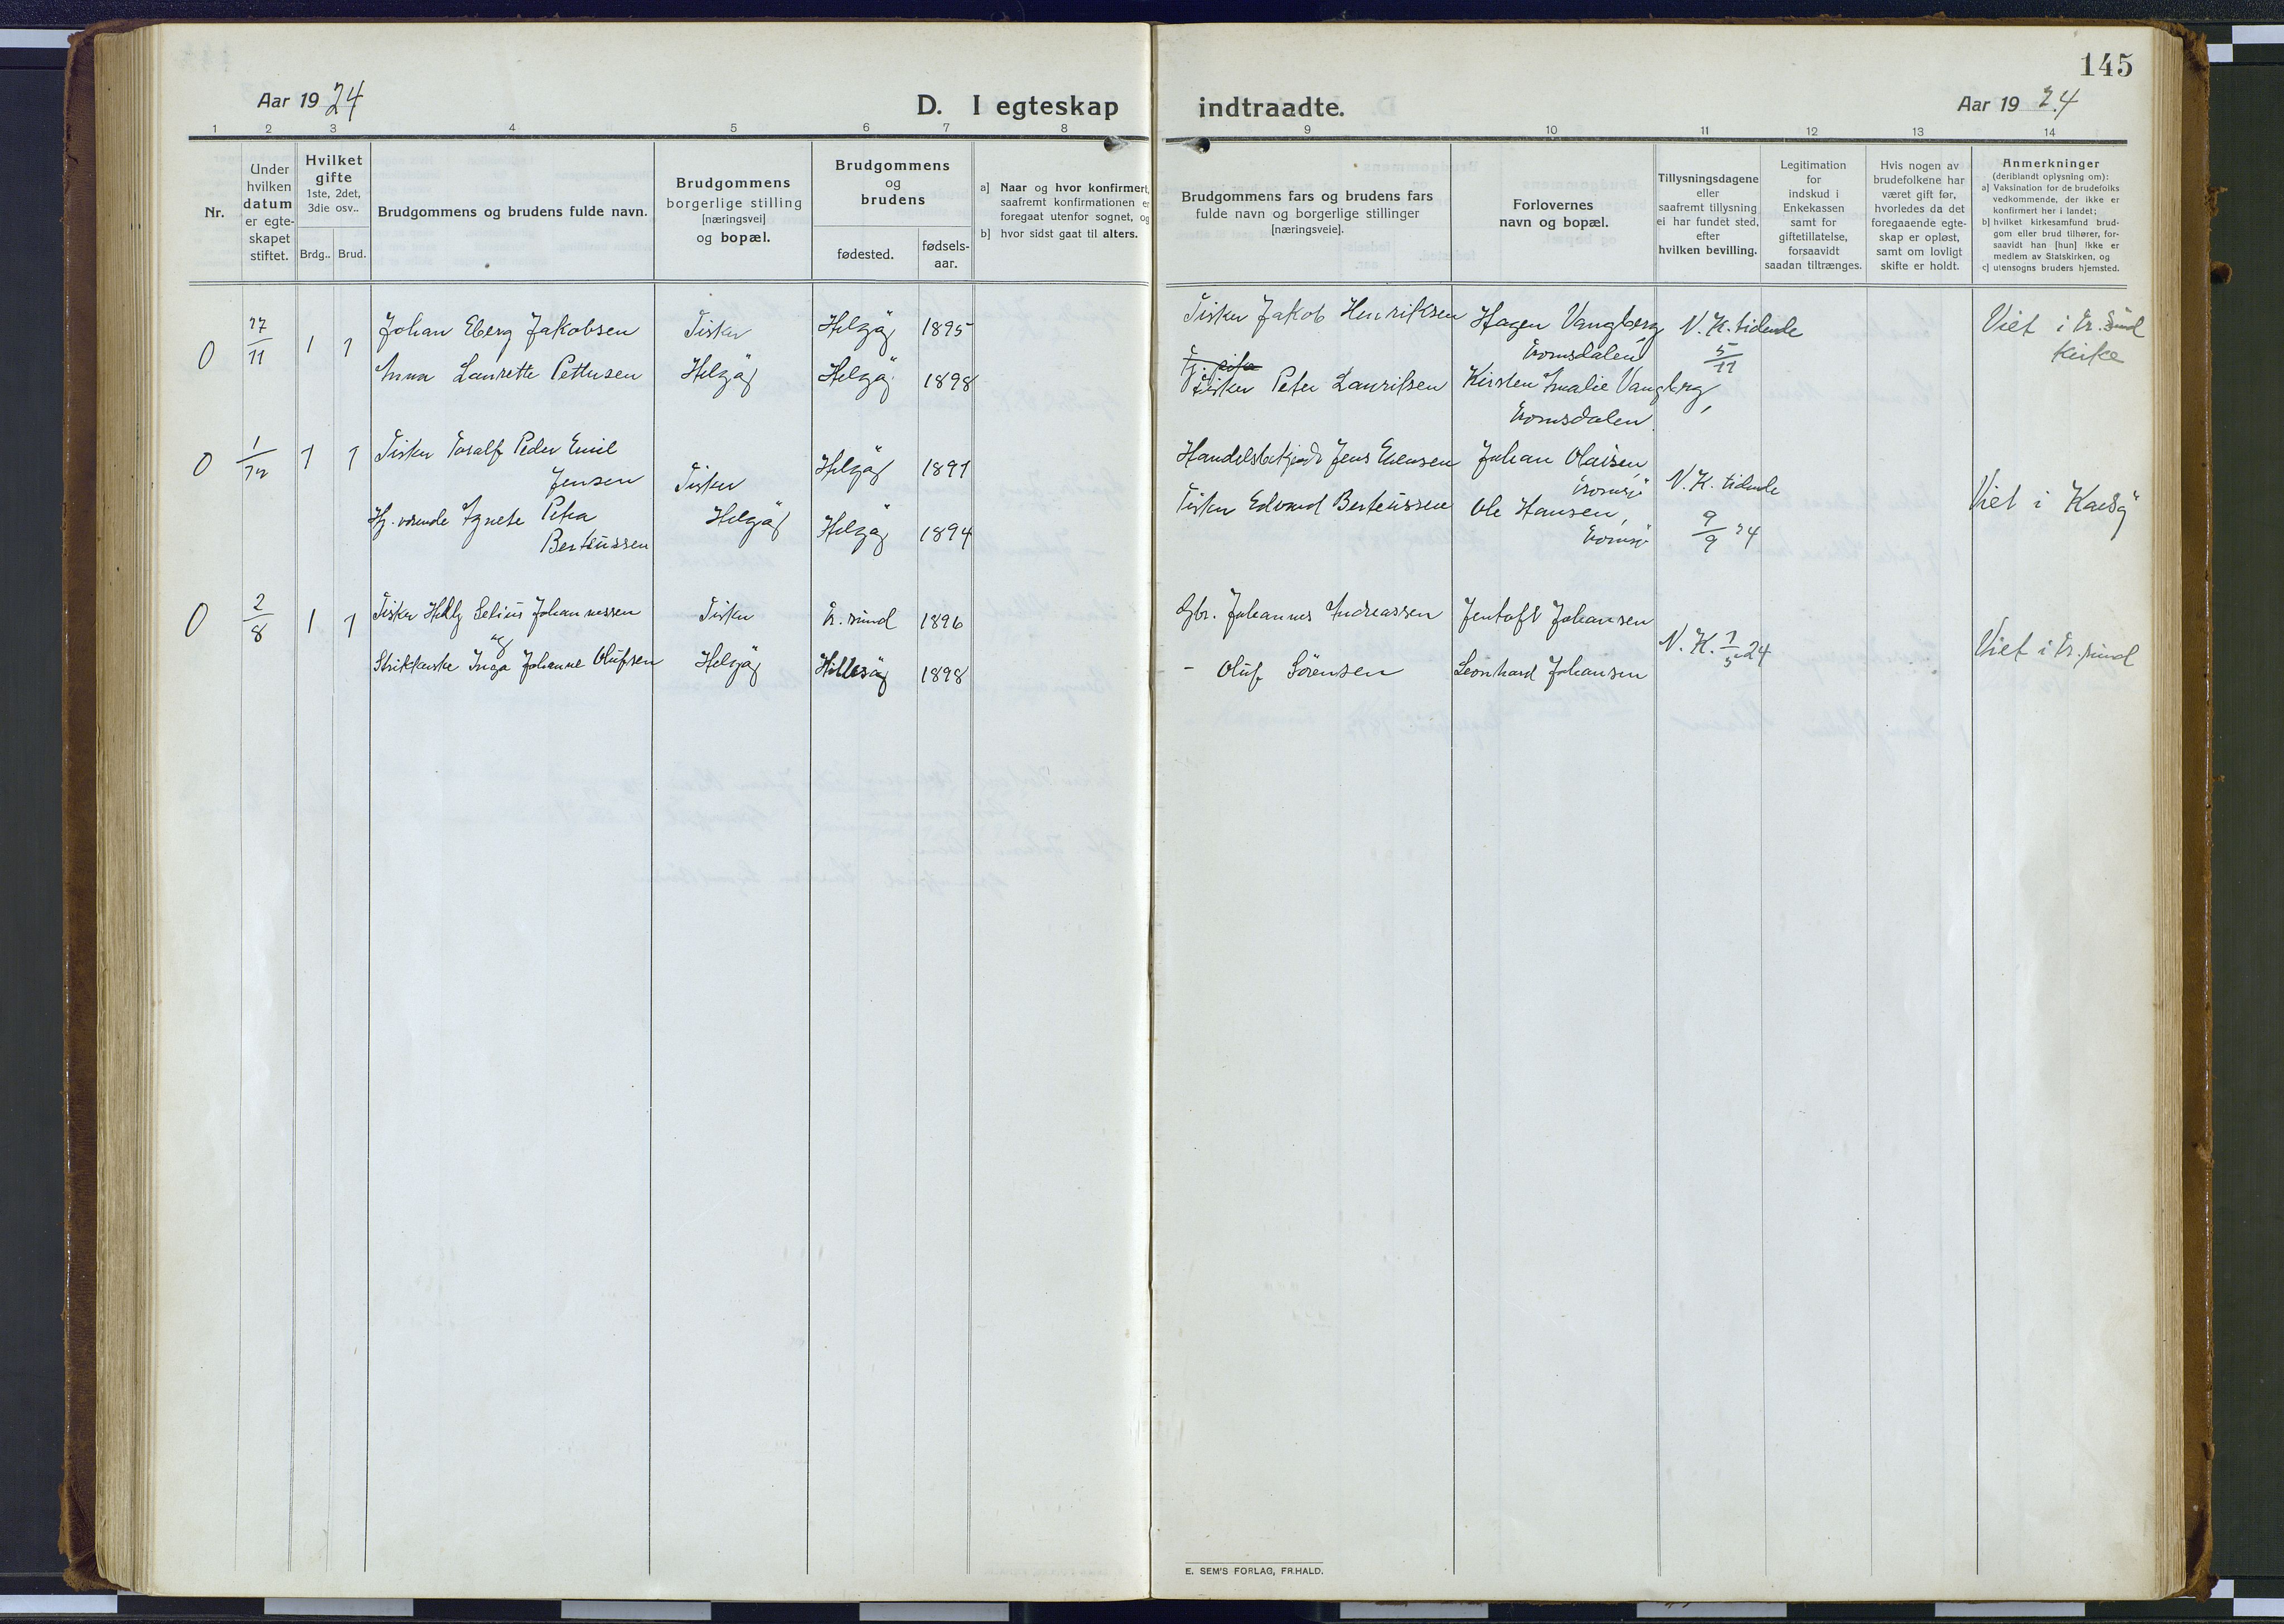 145
Aar 1924
D. I egteskap indtraadte.
Aar 1924
1 2 3 4 5 6 7 8 9 10 11 12 13 14
Nr.
Under
hvilken
datum
er egte-
skapet
stiftet.
Hvilket
gifte
1ste, 2det,
3die osv..
Brdg.. Brud.
Brudgommens og brudens fulde navn.
Brudgommens
borgerlige stilling
[næringsvei]
og bopæl.
Brudgommens
og
brudens
fødested.
fødsels-
aar.
a] Naar og hvor konfirmert,
saafremt konfirmationen er
foregaat utenfor sognet, og
b] hvor sidst gaat til alters.
Brudgommens fars og brudens fars
fulde navn og borgerlige stillinger
[næringsveie].
Forlovernes
navn og bopæl.
Tillysningsdagene
eller
saafremt tillysning
ei har fundet sted,
efter
hvilken bevilling.
Legitimation
for
indskud i
Enkekassen
samt for
giftetillatelse,
forsaavidt
saadan tiltrænges.
Hvis nogen av
brudefolkene har
været gift før,
hvorledes da det
foregaaende egte-
skap er opløst,
samt om lovligt
skifte er holdt.
Anmerkninger
(deriblandt oplysning om):
a] Vaksination for de brudefolks
vedkommende, der ikke er
konfirmert her i landet;
b] hvilket kirkesamfund brud-
gom eller brud tilhører, for-
saavidt han [hun] ikke er
medlem av Statskirken, og
c] utensogns bruders hjemsted.
0 17/11 1 1 Johan Eberg Jakobsen Fisker Helgøy 1895 Fisker Jakob Henriksen Hagen Vangberg, N. K. tidende Viet i Tr. sund
Tromsdalen 5/11 kirke
Anna Laurette Pettersen Helgøy Helgøy 1898 Fisker Peter Lauritsen Kirsten Amalie Vangberg,
Tromsdalen
0 1/12 1 1 Fisker Toralf Peder Emil Helgøy 1891 Jens Evensen Johan Olaisen,
Jensen Fisker Tromsø N. K. tidende Viet i Karlsøy
Hj. værende Agnete Petra Helgøy Helgøy 1894 Fisker Edvard Berteussen Ole Hansen, 9/9 24
Berteussen Tromsø
0 2/8 1 1 Fisker Selius Johannessen Fisker Tr. sund 1896 Gbr. Johannes Andreassen Jentoft Johansen
og N. K. 24 Viet i Tr. sund
Strikkerske Inga Johanne Olufsen Helgøy Hillesøy 1898 - Oluf Sørensen Leonhard Johansen
E. SEM'S FORLAG, FR.HALD.